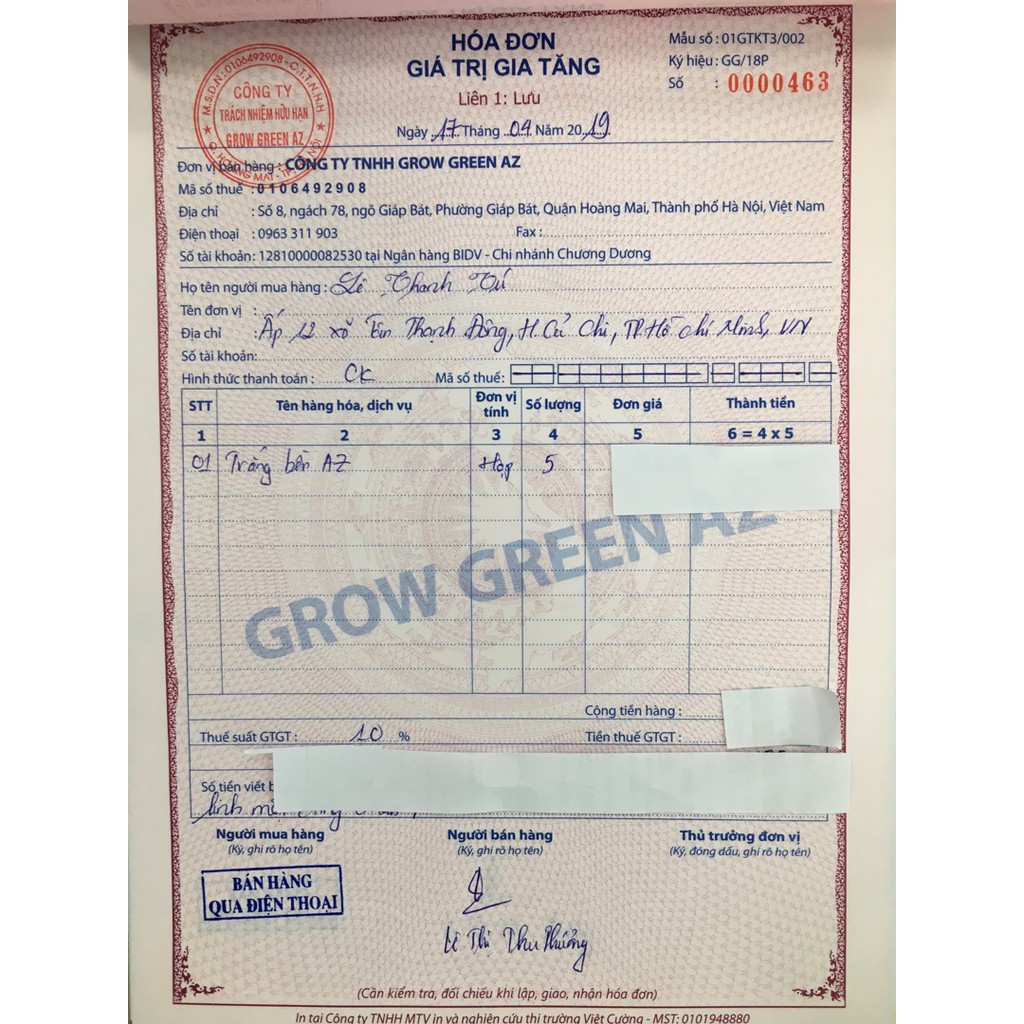 HÓA ĐƠN
GIÁ TRỊ GIA TĂNG
Liên 1: Lưu
Ngày 17 Tháng 04 Năm 2019
Mẫu số : 01GTKT3/002
Ký hiệu : GG/18P
Số : 0000463
M.S.D.N: 0106492908 - C.T.T.N.H.H
CÔNG TY
TRÁCH NHIỆM HỮU HẠN
GROW GREEN AZ
Q. HOÀNG MAI - TP. HÀ NỘI
Đơn vị bán hàng : CÔNG TY TNHH GROW GREEN AZ
Mã số thuế : 0106492908
Địa chỉ : Số 8, ngách 78, ngõ Giáp Bát, Phường Giáp Bát, Quận Hoàng Mai, Thành phố Hà Nội, Việt Nam
Điện thoại : 0963 311 903 Fax :
Số tài khoản: 12810000082530 tại Ngân hàng BIDV - Chi nhánh Chương Dương
Họ tên người mua hàng : Lê Thanh Tú
Tên đơn vị :
Địa chỉ : Ấp 12 xã Tân Thạnh Đông, H. Củ Chi, TP. Hồ Chí Minh, VN
Số tài khoản:
Hình thức thanh toán : CK Mã số thuế:
STT Tên hàng hóa, dịch vụ Đơn vị tính Số lượng Đơn giá Thành tiền
1 2 3 4 5 6 = 4 x 5
01 Tràng bền AZ Hộp 5
GROW GREEN AZ
Cộng tiền hàng :
Thuế suất GTGT : 10 % Tiền thuế GTGT :
Số tiền viết
Người mua hàng Người bán hàng Thủ trưởng đơn vị
(Ký, ghi rõ họ tên) (Ký, ghi rõ họ tên) (Ký, đóng dấu, ghi rõ họ tên)
BÁN HÀNG
QUA ĐIỆN THOẠI
Lê Thị Thu Phương
(Cần kiểm tra, đối chiếu khi lập, giao, nhận hóa đơn)
In tại Công ty TNHH MTV in và nghiên cứu thị trường Việt Cường - MST: 0101948880